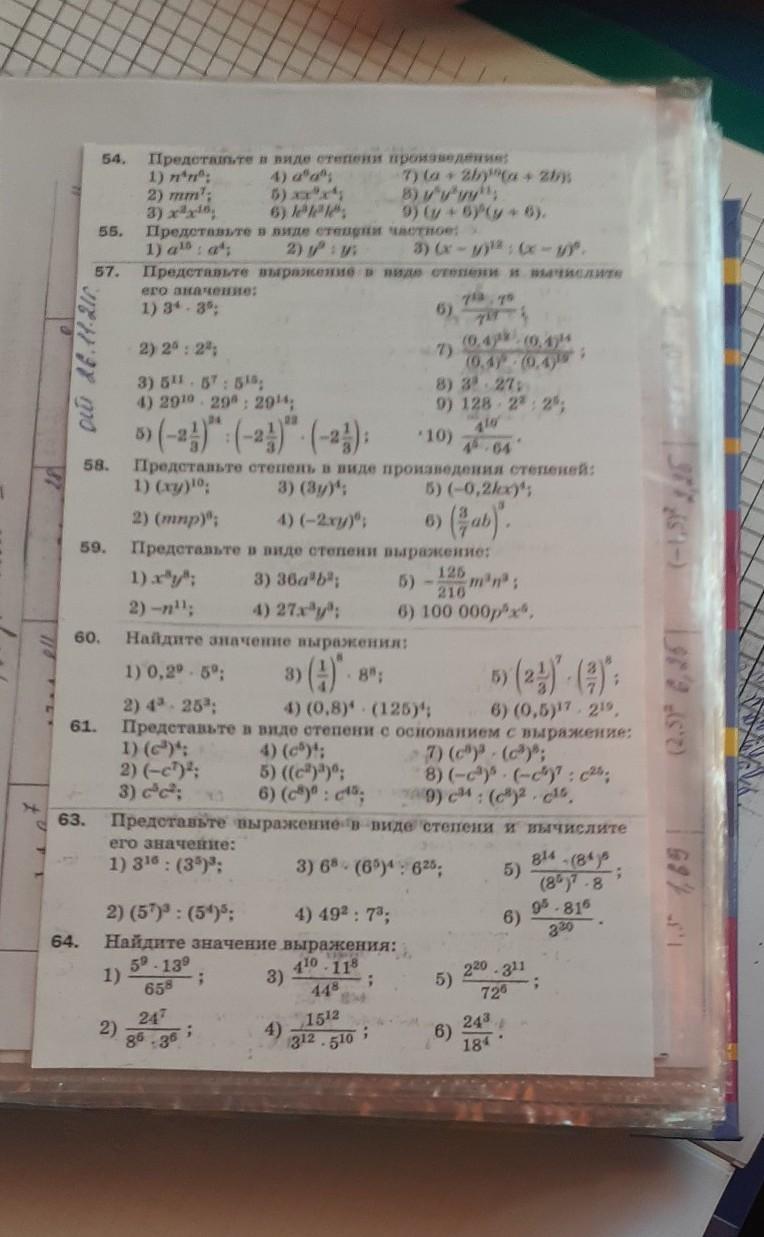 54. Представьте в виде степени произведение:
1) n⁴n⁶; 4) a⁶a⁶; 7) (a + 2b)¹⁰(a + 2b);
2) mm⁷; 5) xx⁹x⁴; 8) y⁵y²yy¹¹;
3) x²x¹⁶; 6) k³k²k⁸; 9) (y + 6)⁵(y + 6).
55. Представьте в виде степени частное:
1) a¹⁵ : a⁴; 2) y⁹ : y; 3) (x − y)¹² : (x − y)⁶.
57. Представьте выражение в виде степени и вычислите
его значение:
1) 3⁴ · 3⁵; 6) 7¹³ · 7⁶ / 7¹⁷;
2) 2⁵ : 2²; 7) (0,4)¹² · (0,4)¹⁴ / (0,4)⁵ · (0,4)¹⁹;
3) 5¹¹ · 5⁷ : 5¹⁵; 8) 3³ · 27;
4) 29¹⁰ · 29⁶ : 29¹⁴; 9) 128 · 2² : 2⁵;
5) (−2 1/3)²⁴ : (−2 1/3)²² · (−2 1/3); 10) 4¹⁰ / 4⁵ · 64.
58. Представьте степень в виде произведения степеней:
1) (xy)¹⁰; 3) (3y)⁴; 5) (−0,2kx)⁴;
2) (mnp)⁶; 4) (−2xy)⁶; 6) (3/7 ab)³.
59. Представьте в виде степени выражение:
1) x⁸y⁸; 3) 36a²b²; 5) −125/216 m³n³;
2) −n¹¹; 4) 27x³y³; 6) 100 000p⁵x⁵.
60. Найдите значение выражения:
1) 0,2⁹ · 5⁹; 3) (1/4)⁸ · 8⁸; 5) (2 1/3)⁷ · (3/7)⁸;
2) 4³ · 25³; 4) (0,8)⁴ · (125)⁴; 6) (0,5)¹⁷ · 2¹⁹.
61. Представьте в виде степени с основанием c выражение:
1) (c³)⁴; 4) (c⁵)⁴; 7) (c⁸)³ · (c³)⁸;
2) (−c⁷)²; 5) ((c²)³)⁶; 8) (−c³)⁵ · (−c⁵)⁷ : c²⁵;
3) c⁵c²; 6) (c⁸)⁶ : c⁴⁵; 9) c³⁴ : (c⁸)² · c¹⁵.
63. Представьте выражение в виде степени и вычислите
его значение:
1) 3¹⁶ : (3⁵)³; 3) 6⁸ · (6⁵)⁴ : 6²⁵; 5) 8¹⁴ · (8⁴)⁶ / (8⁵)⁷ · 8;
2) (5⁷)³ : (5⁴)⁵; 4) 49² : 7³; 6) 9⁵ · 81⁶ / 3³⁰.
64. Найдите значение выражения:
1) 5⁹ · 13⁹ / 65⁸; 3) 4¹⁰ · 11⁸ / 44⁸; 5) 2²⁰ · 3¹¹ / 72⁶;
2) 24⁷ / 8⁶ · 3⁶; 4) 15¹² / 3¹² · 5¹⁰; 6) 24³ / 18⁴.
26.11.21г.
(−1,5)² 2,25
(2,5)² 6,25